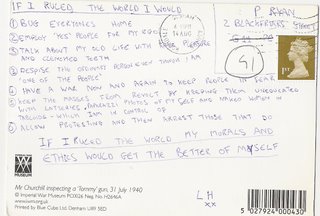 IF I RULED THE WORLD I WOULD
① BUG EVERYONES HOME
② EMPLOY 'YES' PEOPLE FOR MY EGO
③ TALK ABOUT MY OLD LIFE WITH FEAR, PLEASURE
AND CLENCHED TEETH
④ DESPISE THE ORDINARY PERSON EVEN THOUGH I AM
'ONE OF THE PEOPLE'
⑤ HAVE A WAR NOW AND AGAIN TO KEEP PEOPLE IN FEAR
⑥ KEEP THE MASSES FROM REVOLT BY KEEPING THEM UNEDUCATED
WITH LOTTERIES, PAPARAZZI PHOTOS OF MYSELF AND NAKED WOMEN IN
TABLOIDS - WHICH I'M IN CONTROL OF
⑦ ALLOW PROTESTING AND THEN ARREST THOSE THAT DO
IF I RULED THE WORLD MY MORALS AND
ETHICS WOULD GET THE BETTER OF MYSELF
LH
xx
P. RYAN
2 BLACKFRIARS
14 AUG
91
1ST
Mr Churchill inspecting a 'Tommy' gun, 31 July 1940
© Imperial War Museum POX026 Neg. No. H2646A
Printed by Blue Cube Ltd. Denham UB9 5ED
5 027924 000430